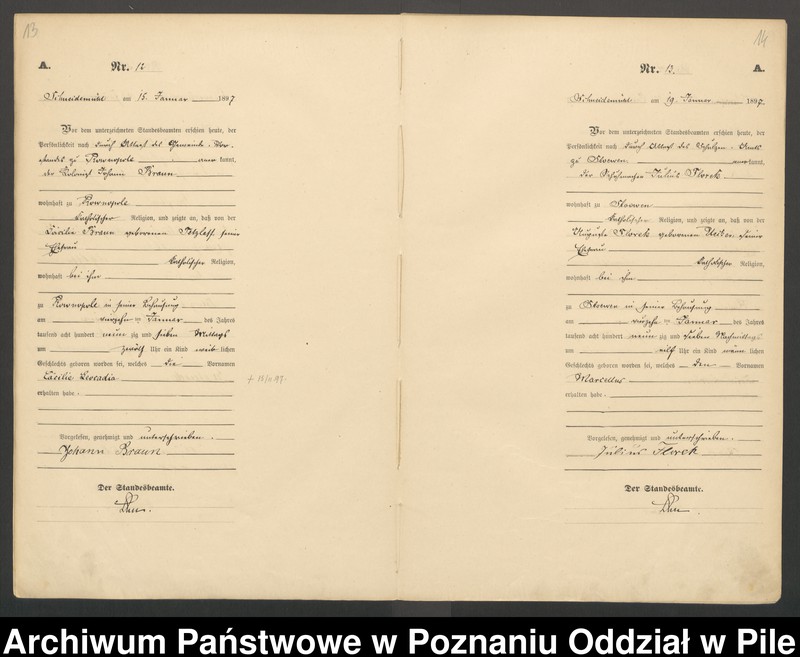 13
A.
Nr. 12
Schneidemühl am 15. Januar 1897
Vor dem unterzeichneten Standesbeamten erschien heute, der
Persönlichkeit nach durch Attest des Gemeinde-Vor-
standes zu Rownopole kannt,
der Kolonist Johann Braun
wohnhaft zu Rownopole
katholischer Religion, und zeigte an, daß von der
Cäcilie Braun geborenen seiner
Ehefrau
katholischer Religion,
wohnhaft bei ihm
zu Rownopole in seiner Behausung
am vierzehn ten Januar des Jahres
tausend acht hundert neun zig und sieben Mittags
um zwölf Uhr ein Kind weib lichen
Geschlechts geboren worden sei, welches die Vornamen
Cäcilie Leocadia
erhalten habe.
+ 97.
Vorgelesen, genehmigt und unterschrieben.
Johann Braun
Der Standesbeamte.
14
Nr. 13.
A.
Schneidemühl am 19. Januar 1897.
Vor dem unterzeichneten Standesbeamten erschien heute, der
Persönlichkeit nach durch Attest des Schulzen-Amts
zu Stoewen kannt,
der Schuhmacher Julius Florek
wohnhaft zu Stoewen
katholischer Religion, und zeigte an, daß von der
Auguste Florek geborenen seiner
Ehefrau
katholischer Religion,
wohnhaft bei ihm
zu Stoewen in seiner Behausung
am vierzehn ten Januar des Jahres
tausend acht hundert neun zig und sieben Nachmittags
um elf Uhr ein Kind männ lichen
Geschlechts geboren worden sei, welches den Vornamen
Marcellus
erhalten habe.
Vorgelesen, genehmigt und unterschrieben.
Julius Florek
Der Standesbeamte.
Archiwum Państwowe w Poznaniu Oddział w Pile